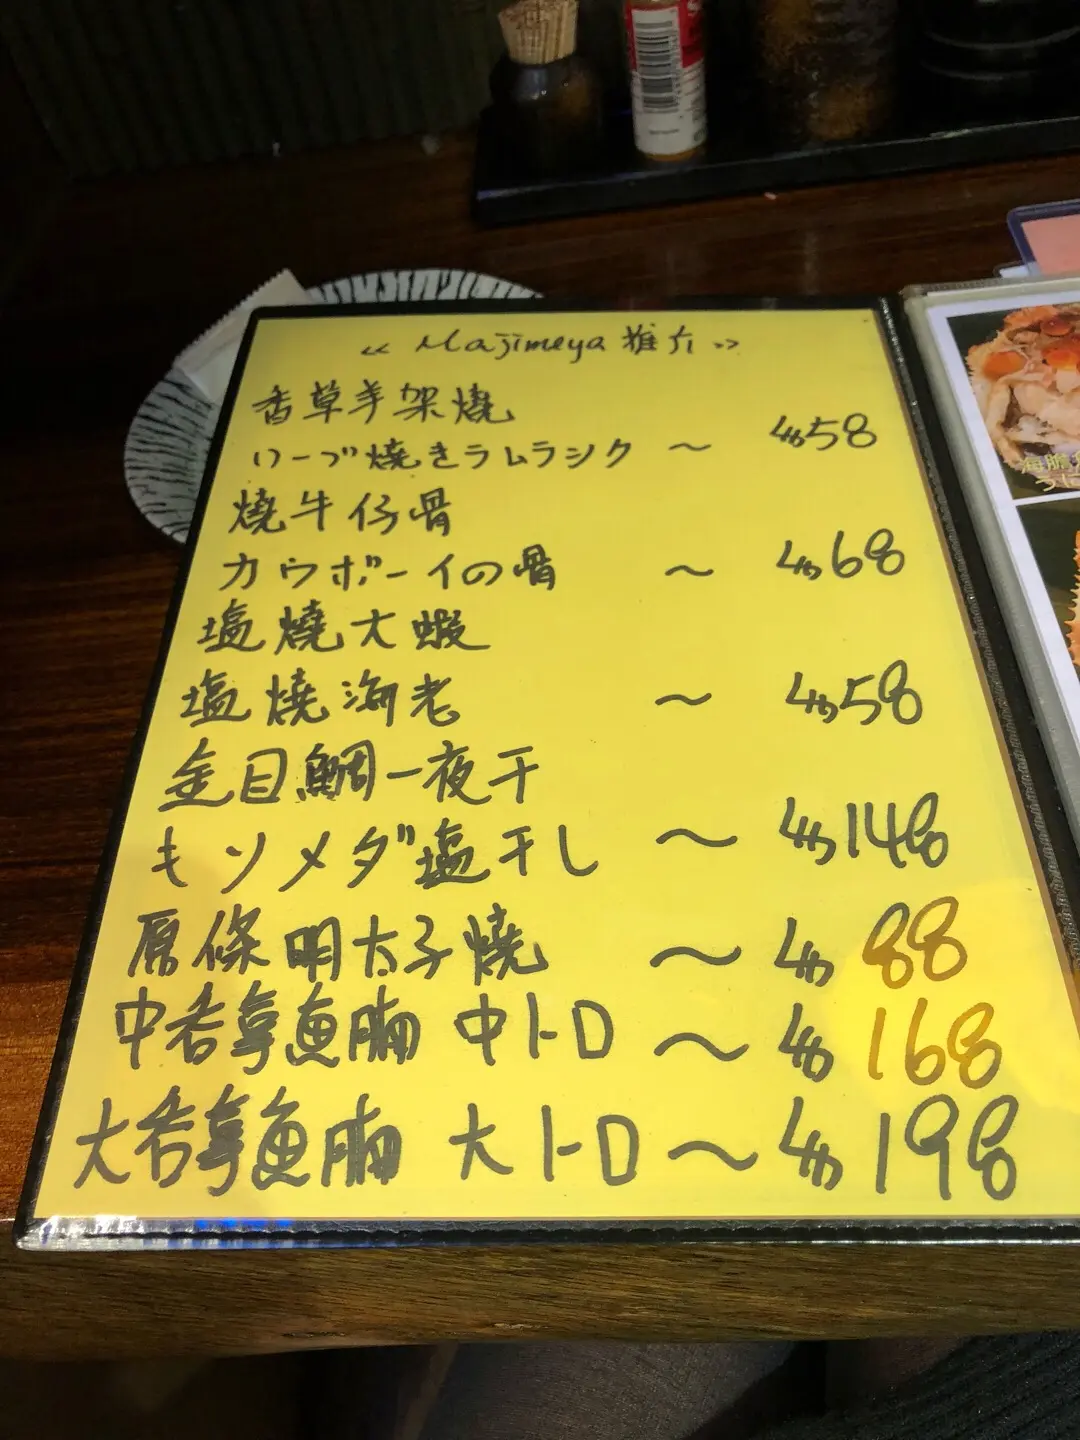 « Majimeya 推介 »
香草羊架燒
ハーブ焼きラムラック ~ $58
燒牛仔骨
カウボーイの骨 ~ $68
塩燒大蝦
塩焼海老 ~ $58
金目鯛一夜干
キンメダイ塩干し ~ $148
原條明太子燒 ~ $88
中吞拿魚腩 中トロ ~ $168
大吞拿魚腩 大トロ ~ $198
海膽
うに